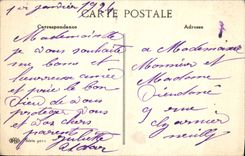 1er janvier 1921
CARTE POSTALE
Correspondance
Adresse
Mademoiselle
je vous souhaite
une bonne et
heureuse année
et prie le bon
Dieu de vous
protéger vous
et vos chers
parents
Juliette
a Mademoiselle
Monnier et
Madame
9 rue
neuilly
ELD